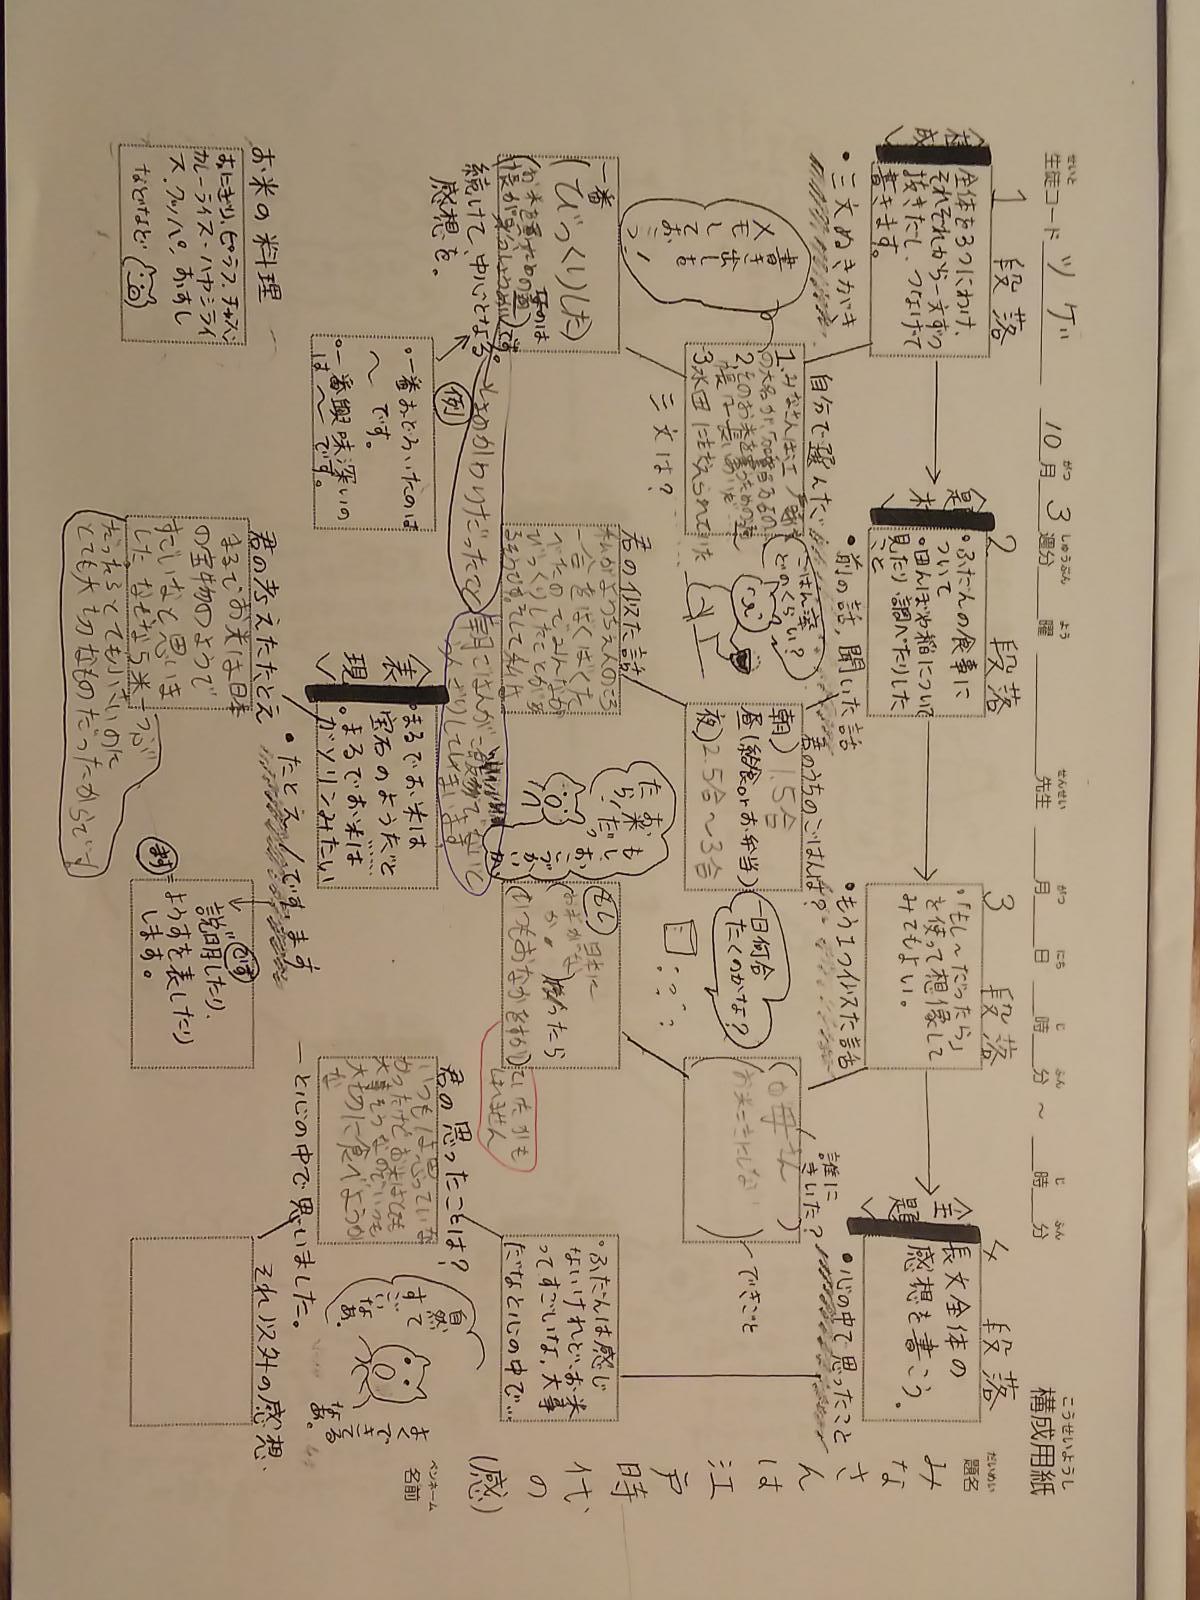 構成用紙
こうせいようし
生徒コード ツゲ
せいと
10月3週分 曜 先生 月 日 時 分 ～ 時 分
がつ しゅうぶん よう せんせい がつ にち じ ふん じ ふん
題名
だいめい
みなさんは江戸時代の(感)
ペンネーム
名前
1 段落
2 段落
3 段落
4 段落
構成
全体を3つにわけ、
それぞれから一文ずつ
抜きだし、つなげて
書きます。
題材
・ふだんの食事に
ついて
・田んぼや稲について
見たり、調べたりした
こと
・「もし～だったら」
を使って想像して
みてもよい。
主題
長文全体の
感想を書こう。
・三文ぬきがき
自分で選んだ
三文は?
書き出しを
メモして
おこう!
1、みなさんは江戸時代
3水田に支えられていた
一番
(びっくりした)
続けて、中心となる
感想を。
例
・一番おどろいたのは
～です。
・一番興味深いの
は～です。
お米の料理
おにぎり、ピラフ、チャーハン
カレーライス・ハヤシライ
ス、クッパ、おすし
などなど!
・前の話、聞いた話
君のうちのごはんは?
ごはん茶
どのくらい?
朝) 1.5合
昼(給食orお弁当)
夜) 2.5合～3合
一日何合
たくのかな?
君の似た話
私がようちえんのころ
一合をばくばくた
べたのでみんなが
びっくりしたことが
朝ごはんが
表現
・まるでお米は
宝石のようだ
・まるでお米は
ガソリンみたい
・たとえ
君の考えたたとえ
まるでお米は日本
の宝物のようで
すごいなと思いま
した。なぜなら米一つぶ
だったらとても小さいのに
とても大切なものだったからです
です ます
ます=ようすを表したり
します。
です
説明したり、
・もう1つ似た話
誰に
きいた?
(お母さん)
～できごと
もしも、
お米
だったら
おこづかい
もし
日本に
お米がなかったら
いつもおなかをすかし
ていたかも
しれません
・心の中で思ったこと
・ふだんは感じ
ないけれど、お米
ってすごいな、大事
だなと心の中で…
君の思ったことは?
いつもは思っていな
かったけどお米はとても
大事そうなのでいつも
大切に食べようか
な
ーと心の中で思いました。
それ以外の感想、
自然
って
すごい
なあ。
よく
できて
る
なあ。